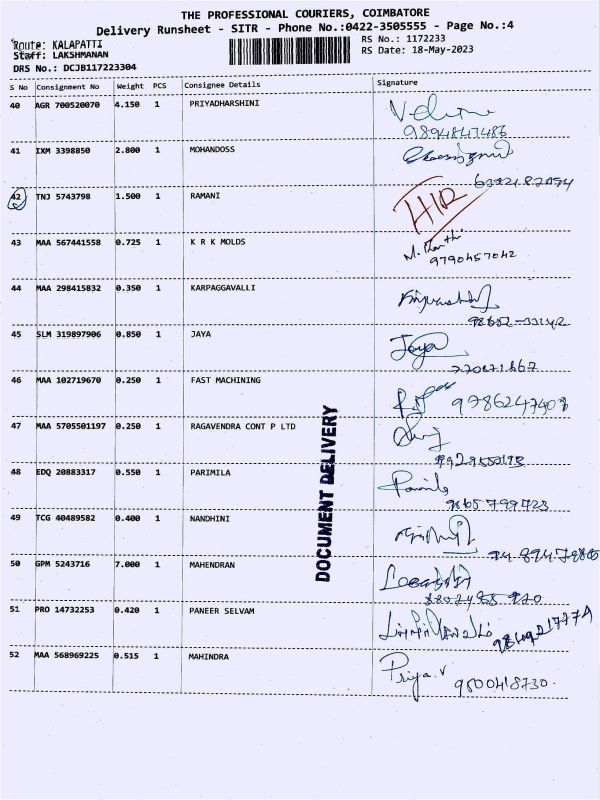 THE PROFESSIONAL COURIERS, COIMBATORE
Delivery Runsheet - SITR - Phone No.:0422-3505555 - Page No.:4
Route: KALAPATTI
RS No.: 1172233
Staff: LAKSHMANAN
RS Date: 18-May-2023
DRS No.: DCJB117223304
S No Consignment No Weight PCS Consignee Details Signature
40 AGR 700520070 4.150 1 PRIYADHARSHINI
9894847486
41 IXM 3398850 2.800 1 MOHANDOSS
42 TNJ 5743798 1.500 1 RAMANI
43 MAA 567441558 0.725 1 K R K MOLDS
9790457042
44 MAA 298415832 0.350 1 KARPAGGAVALLI
45 SLM 319897906 0.850 1 JAYA Jaya
46 MAA 102719670 0.250 1 FAST MACHINING
9786247408
47 MAA 5705501197 0.250 1 RAGAVENDRA CONT P LTD
48 EDQ 20883317 0.550 1 PARIMILA
9865799723
49 TCG 40489582 0.400 1 NANDHINI
50 GPM 5243716 7.000 1 MAHENDRAN
51 PRO 14732253 0.420 1 PANEER SELVAM
52 MAA 568969225 0.515 1 MAHINDRA Priya.V
9500418730
DOCUMENT DELIVERY